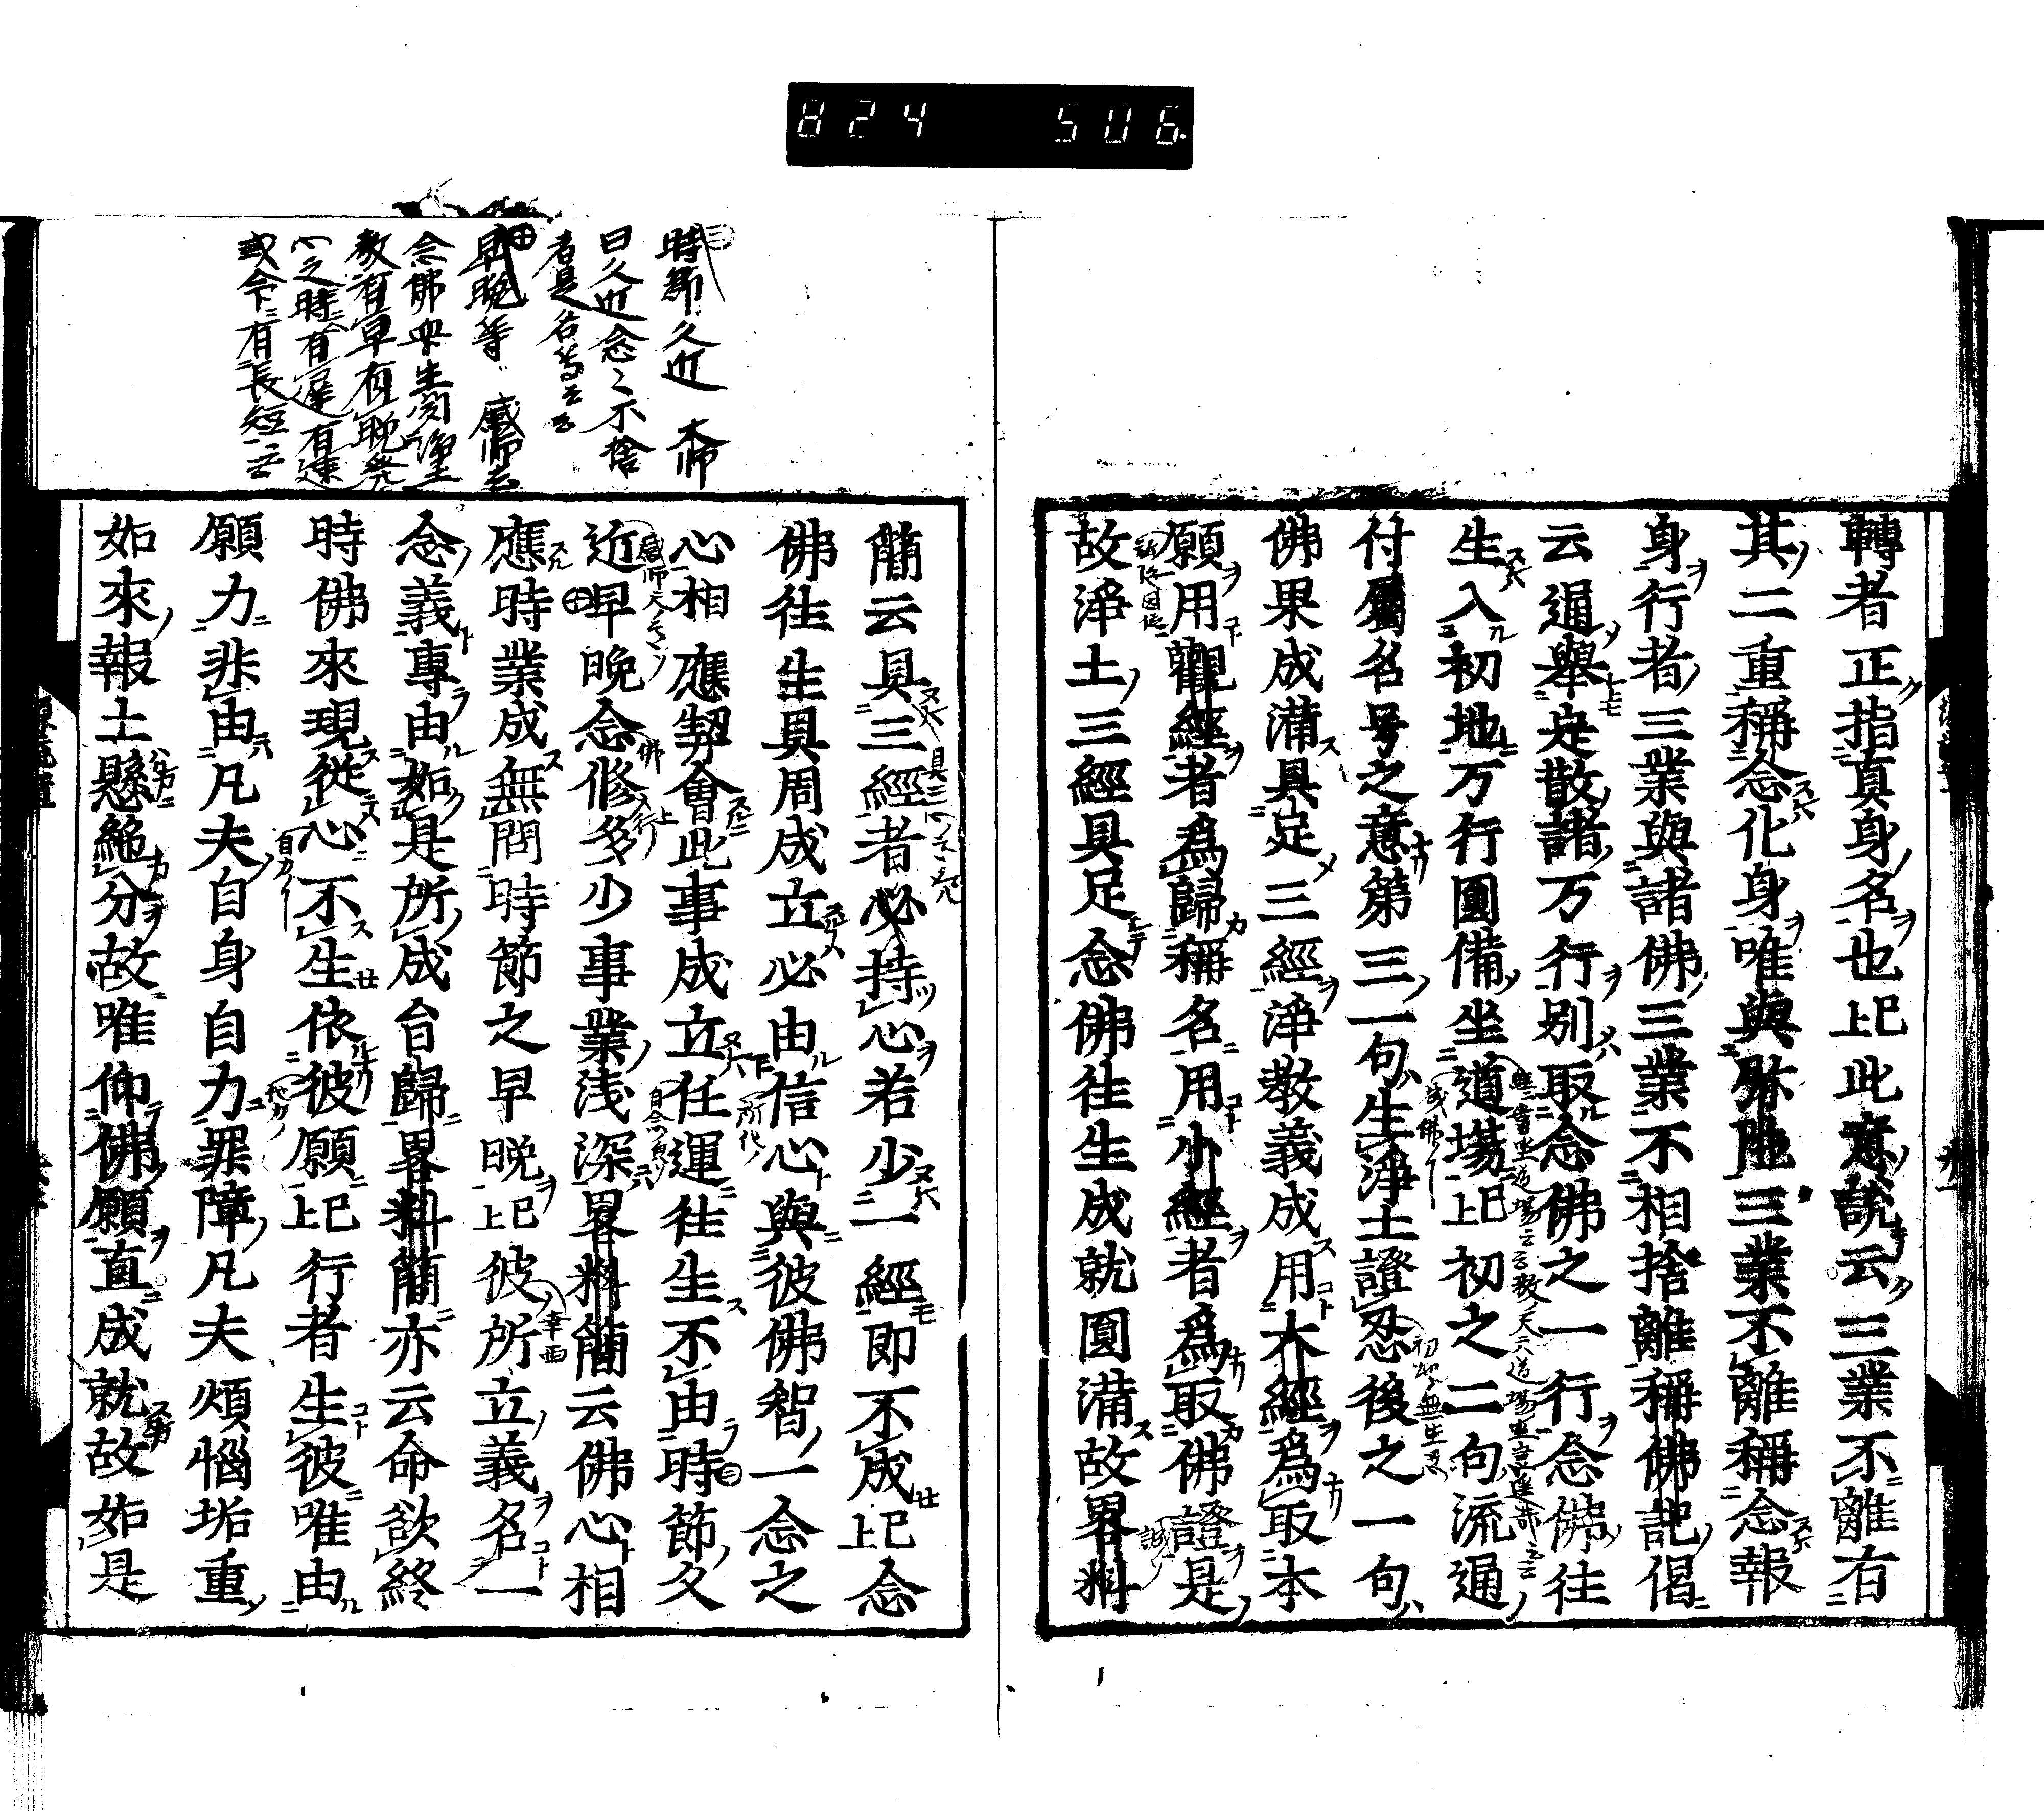 824 506
轉者正指真身名也已上此意說云三業不離有
其二重稱念化身唯與弥陁三業不離稱念報
身行者三業與諸佛三業不相捨離稱佛記偈
云通舉定散諸万行別取念佛之一行念佛往
生入初地万行圓備坐道場已上初之二句流通
付屬名号之意第三一句生淨土證忍後之一句
佛果成滿具足三經淨教義成用大經為取本
願用觀經者為歸稱名用小經者為取佛證是
故淨土三經具足念佛往生成就圓滿故畧料
簡云具三經者必持心若少一經即不成已上念
佛往生具周成立必由信心與彼佛智一念之
心相應契會此事成立任運往生不由時節久
近早晚念修多少事業浅深畧料簡云佛心相
應時業成無問時節之早晚已上彼所立義名一
念義專由如是所成旨歸畧料簡亦云命欲終
時佛來現從心不生依彼願已上行者生彼唯由
願力非由凡夫自身自力罪障凡夫煩惱垢重
如來報土懸絶分故唯仰佛願直成就故如是
時節久近 大師
曰久近念々不捨
者是名等云云
早晚等 感師云
念佛衆生聞淨土
教有早有晚發
心之時有遲有速
或令有長短云云